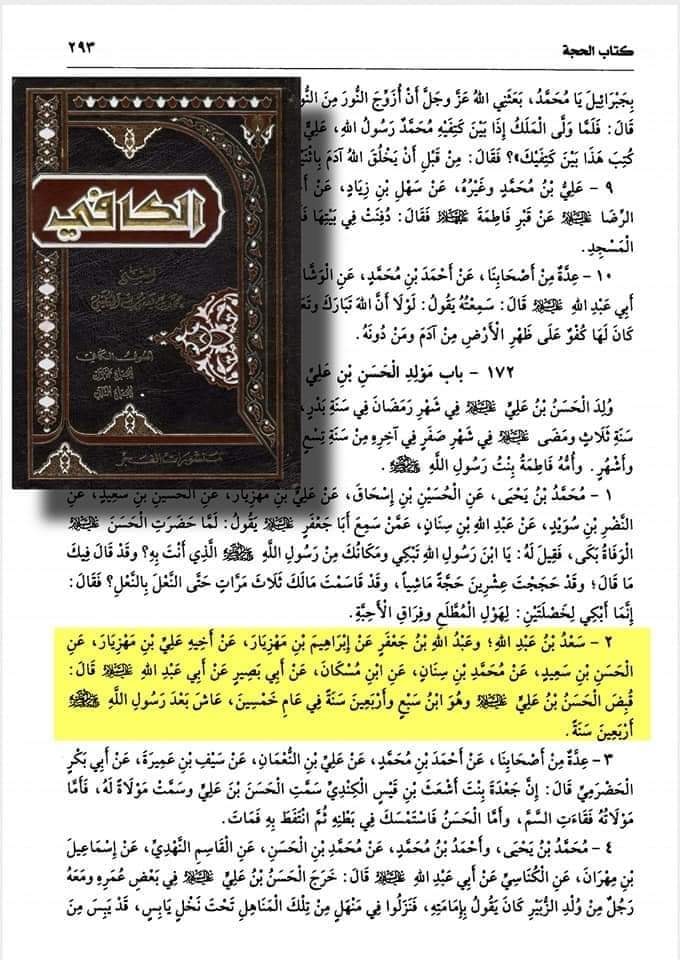 كتاب الحجة
٢٩٣
بِجَبْرَائِيلَ يَا مُحَمَّدُ، بَعَثَنِي اللهُ عَزَّ وجَلَّ أَنْ أُزَوِّجَ النُّورَ مِنَ
قَالَ: فَلَمَّا وَلَّى الْمَلَكُ إِذَا بَيْنَ كَتِفَيْهِ مُحَمَّدٌ رَسُولُ اللهِ، عَلِيٌّ
كُتِبَ هَذَا بَيْنَ كَتِفَيْكَ»؟ فَقَالَ: مِنْ قَبْلِ أَنْ يَخْلُقَ اللهُ آدَمَ
٩ - عَلِيُّ بْنُ مُحَمَّدٍ وغَيْرُهُ، عَنْ سَهْلِ بْنِ زِيَادٍ، عَنْ
الرِّضَا عَلَيْهِ السَّلَام عَنْ قَبْرِ فَاطِمَةَ عَلَيْهَا السَّلَام فَقَالَ: دُفِنَتْ فِي بَيْتِهَا
الْمَسْجِدِ.
١٠ - عِدَّةٌ مِنْ أَصْحَابِنَا، عَنْ أَحْمَدَ بْنِ مُحَمَّدٍ، عَنِ الْوَشَّا
أَبِي عَبْدِ اللهِ عَلَيْهِ السَّلَام قَالَ: سَمِعْتُهُ يَقُولُ: لَوْلَا أَنَّ اللهَ تَبَارَكَ
كَانَ لَهَا كُفْوٌ عَلَى ظَهْرِ الْأَرْضِ مِنْ آدَمَ ومَنْ دُونَهُ.
١٧٢ - باب مَوْلِدِ الْحَسَنِ بْنِ عَلِيٍّ
وُلِدَ الْحَسَنُ بْنُ عَلِيٍّ عَلَيْهِ السَّلَام فِي شَهْرِ رَمَضَانَ فِي سَنَةِ بَدْرٍ،
سَنَةَ ثَلَاثٍ ومَضَى عَلَيْهِ السَّلَام فِي شَهْرِ صَفَرٍ فِي آخِرِهِ مِنْ سَنَةِ تِسْعٍ
وأَشْهُرٍ. وأُمُّهُ فَاطِمَةُ بِنْتُ رَسُولِ اللهِ ﷺ.
١ - مُحَمَّدُ بْنُ يَحْيَى، عَنِ الْحُسَيْنِ بْنِ إِسْحَاقَ، عَنْ عَلِيِّ بْنِ مَهْزِيَارَ، عَنِ الْحُسَيْنِ بْنِ سَعِيدٍ، عَنِ
النَّضْرِ بْنِ سُوَيْدٍ، عَنْ عَبْدِ اللهِ بْنِ سِنَانٍ، عَمَّنْ سَمِعَ أَبَا جَعْفَرٍ عَلَيْهِ السَّلَام يَقُولُ: لَمَّا حَضَرَتِ الْحَسَنَ عَلَيْهِ السَّلَام
الْوَفَاةُ بَكَى، فَقِيلَ لَهُ: يَا ابْنَ رَسُولِ اللهِ تَبْكِي ومَكَانُكَ مِنْ رَسُولِ اللهِ ﷺ الَّذِي أَنْتَ بِهِ؟ وقَدْ قَالَ فِيكَ
مَا قَالَ؛ وقَدْ حَجَجْتَ عِشْرِينَ حَجَّةً مَاشِياً، وقَدْ قَاسَمْتَ مَالَكَ ثَلَاثَ مَرَّاتٍ حَتَّى النَّعْلَ بِالنَّعْلِ؟ فَقَالَ:
إِنَّمَا أَبْكِي لِخَصْلَتَيْنِ: لِهَوْلِ الْمُطَّلَعِ وفِرَاقِ الْأَحِبَّةِ.
٢ - سَعْدُ بْنُ عَبْدِ اللهِ؛ وعَبْدُ اللهِ بْنُ جَعْفَرٍ عَنْ إِبْرَاهِيمَ بْنِ مَهْزِيَارَ، عَنْ أَخِيهِ عَلِيِّ بْنِ مَهْزِيَارَ، عَنِ
الْحَسَنِ بْنِ سَعِيدٍ، عَنْ مُحَمَّدِ بْنِ سِنَانٍ، عَنِ ابْنِ مُسْكَانَ، عَنْ أَبِي بَصِيرٍ عَنْ أَبِي عَبْدِ اللهِ عَلَيْهِ السَّلَام قَالَ:
قُبِضَ الْحَسَنُ بْنُ عَلِيٍّ عَلَيْهِ السَّلَام وهُوَ ابْنُ سَبْعٍ وأَرْبَعِينَ سَنَةً فِي عَامِ خَمْسِينَ، عَاشَ بَعْدَ رَسُولِ اللهِ ﷺ
أَرْبَعِينَ سَنَةً.
٣ - عِدَّةٌ مِنْ أَصْحَابِنَا، عَنْ أَحْمَدَ بْنِ مُحَمَّدٍ، عَنْ عَلِيِّ بْنِ النُّعْمَانِ، عَنْ سَيْفِ بْنِ عَمِيرَةَ، عَنْ أَبِي بَكْرٍ
الْحَضْرَمِيِّ قَالَ: إِنَّ جَعْدَةَ بِنْتَ أَشْعَثَ بْنِ قَيْسٍ الْكِنْدِيِّ سَمَّتِ الْحَسَنَ بْنَ عَلِيٍّ وسَمَّتْ مَوْلَاةً لَهُ، فَأَمَّا
مَوْلَاتُهُ فَقَاءَتِ السَّمَّ، وأَمَّا الْحَسَنُ فَاسْتَمْسَكَ فِي بَطْنِهِ ثُمَّ انْتَفَطَ بِهِ فَمَاتَ.
٤ - مُحَمَّدُ بْنُ يَحْيَى، وأَحْمَدُ بْنُ مُحَمَّدٍ، عَنْ مُحَمَّدِ بْنِ الْحَسَنِ، عَنِ الْقَاسِمِ النَّهْدِيِّ، عَنْ إِسْمَاعِيلَ
بْنِ مِهْرَانَ، عَنِ الْكُنَاسِيِّ عَنْ أَبِي عَبْدِ اللهِ عَلَيْهِ السَّلَام قَالَ: خَرَجَ الْحَسَنُ بْنُ عَلِيٍّ عَلَيْهِ السَّلَام فِي بَعْضِ عُمَرِهِ ومَعَهُ
رَجُلٌ مِنْ وُلْدِ الزُّبَيْرِ كَانَ يَقُولُ بِإِمَامَتِهِ، فَنَزَلُوا فِي مَنْهَلٍ مِنْ تِلْكَ الْمَنَاهِلِ تَحْتَ نَخْلٍ يَابِسٍ، قَدْ يَبِسَ مِنَ
الكافي
منشورات الفجر